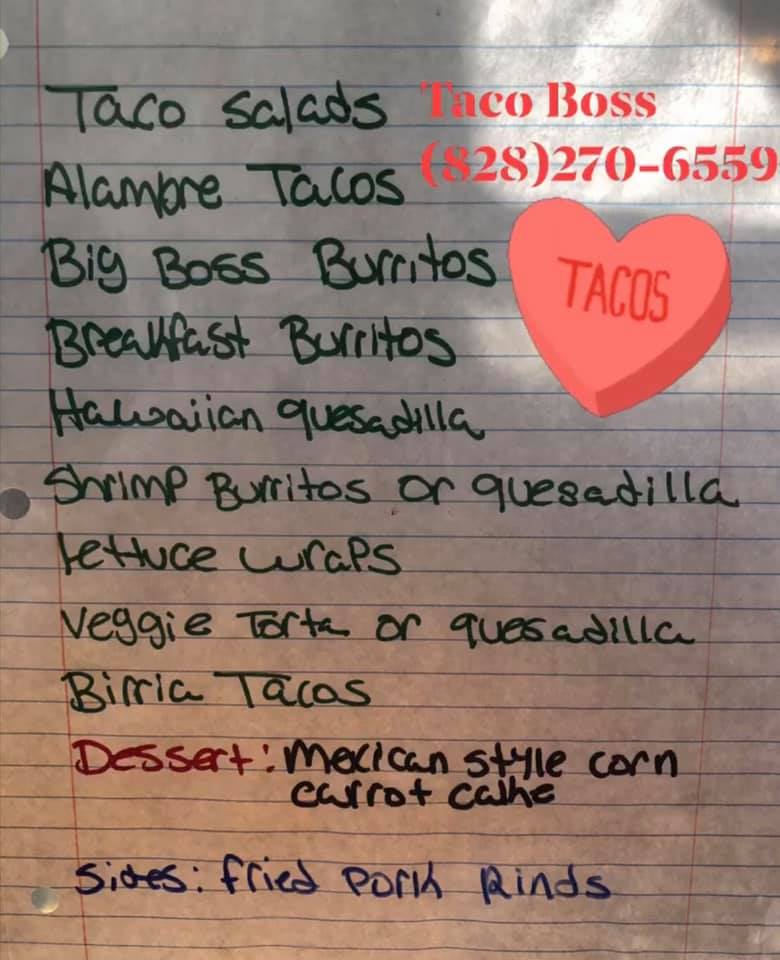 Taco Salads
Taco Boss
(828)270-6559
Alambre Tacos
TACOS
Big Boss Burritos
Breakfast Burritos
Hawaiian quesadilla
Shrimp Burritos or quesadilla
Lettuce wraps
Veggie Torta or quesadilla
Birria Tacos
Dessert: Mexican style corn
carrot cake
Sides: fried pork Rinds